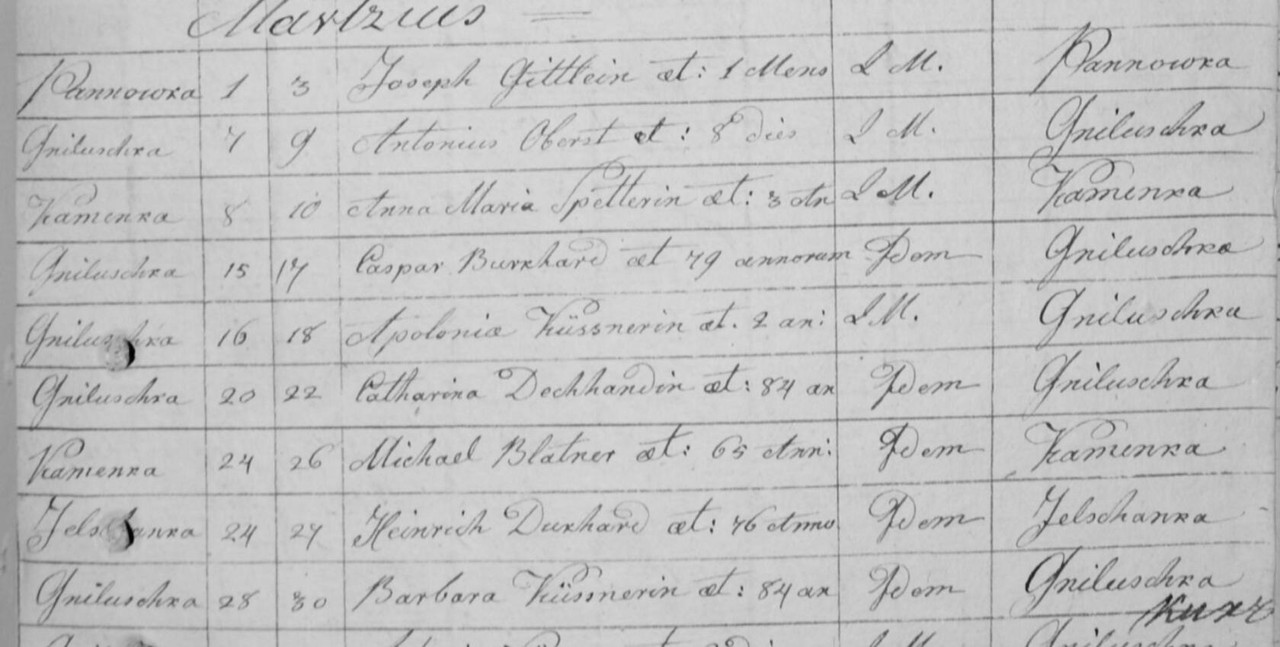 Martzius =
Pannowka 1 3 Joseph Gittlein æt: 1 Mens I M. Pannowka
Gniluschka 7 9 Antonius Oberst æt: 8 dies I M. Gniluschka
Kamenka 8 10 Anna Maria Spetterin æt: 3 An I M. Kamenka
Gniluschka 15 17 Caspar Burkhard æt 79 annorum Idem Gniluschka
Gniluschka 16 18 Apolonia Küssnerin æt. 2 an: I M. Gniluschka
Gniluschka 20 22 Catharina Dechhandin æt: 84 an Idem Gniluschka
Kamenka 24 26 Michael Blatner æt: 65 Ann: Idem Kamenka
Jelschanka 24 27 Heinrich Durhard æt: 76 Anno Idem Jelschanka
Gniluschka 28 30 Barbara Küssnerin æt: 84 an Idem Gniluschka